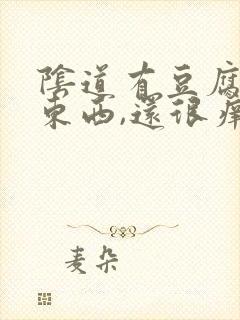 陰道有豆腐
東西,還很癢
麦朵